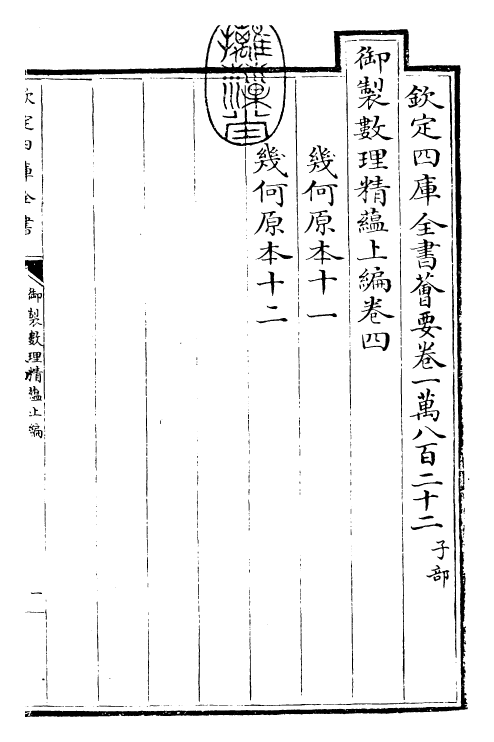 欽定四庫全書薈要卷一萬八百二十二 子部
御製數理精蘊上編卷四
幾何原本十一
幾何原本十二
欽定四庫全書
御製數理精蘊上編
一